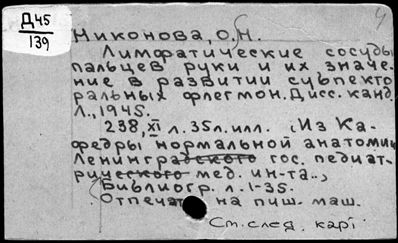 Д45
139
4
Никонова, О.Н.
Лимфатические сосуды
пальцев руки и их значе-
ние в развитии субпекто
ральных флегмон. Дисс. канд.
Л., 1945.
238, XI л. 35л. илл. (Из Ка-
федры нормальной анатомии
Ленинградского гос. педиат-
рического мед. ин-та..)
Библиогр. л. 1-35.
Отпечат на пиш. маш.
См. след. карт